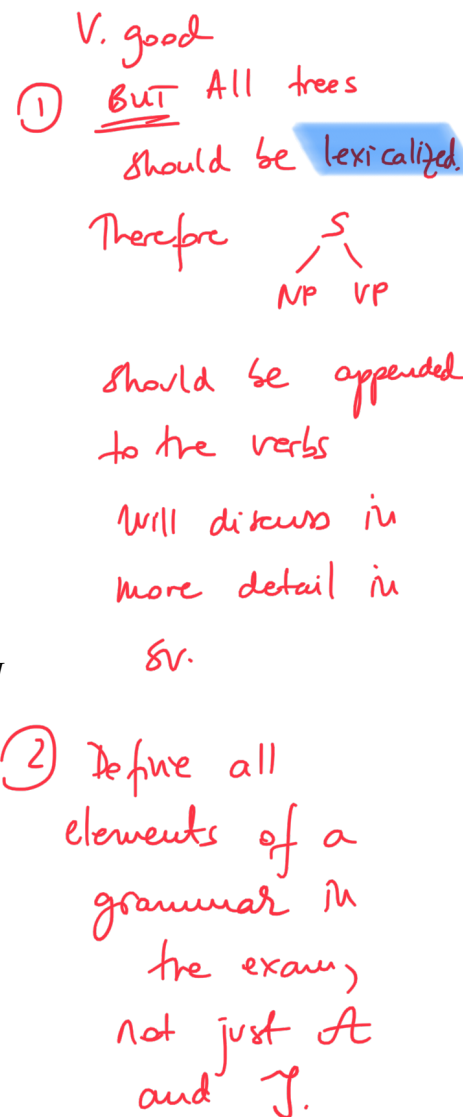 V. good
① BUT All trees
should be lexicalized.
Therefore S
NP VP
should be appended
to the verbs
Will discuss in
more detail in
SV.
② Define all
elements of a
grammar in
the exam,
not just A
and I.